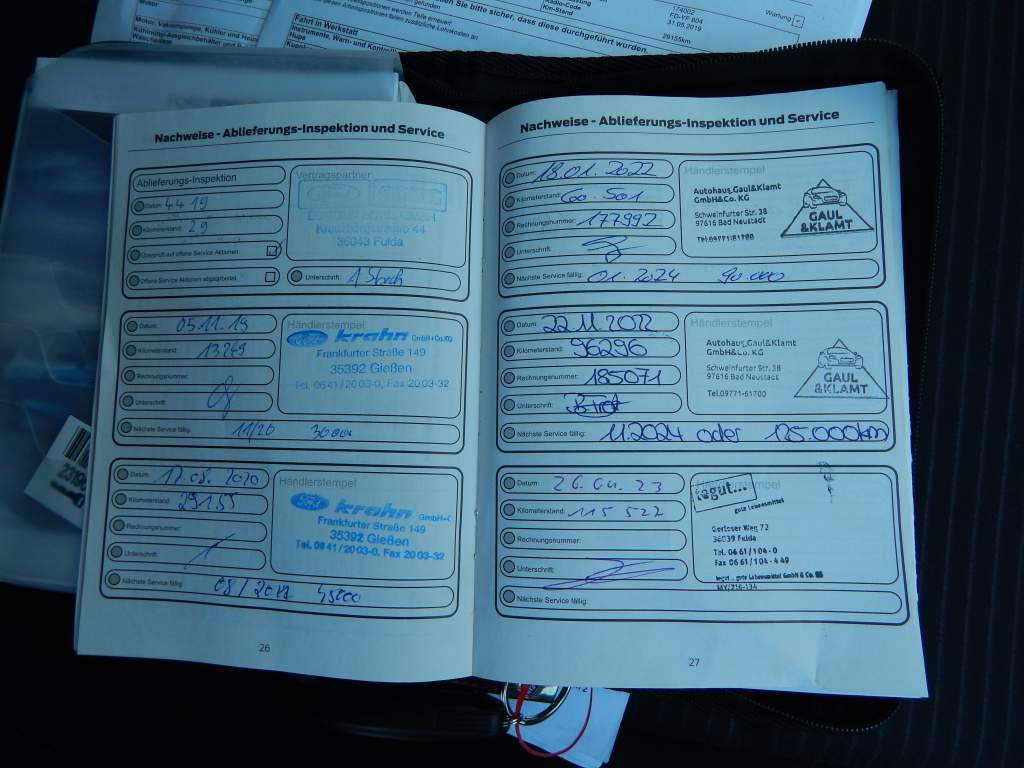 174002
Wartung
Radio-Code
FD-VF 804
Km-Stand
31.05.2019
29155km
Sie bitte sicher, dass diese durchgeführt wurden.
Motor
Motor, Vakuumpumpe, Kühler und
Fahrt in Werkstatt
Hupe
Nachweise - Ablieferungs-Inspektion und Service
Ablieferungs-Inspektion
Datum: 4.4.19
Kilometerstand: 29
Geprüft auf offene Service Aktionen:
Offene Service Aktionen abgearbeitet:
Vertragspartner
44
36043 Fulda
Unterschrift:
Datum: 05.11.19
Kilometerstand: 13249
Rechnungsnummer:
Unterschrift:
Nächste Service fällig: 11/20 30000
Händlerstempel
Ford krahn GmbH+Co.KG
Frankfurter Straße 149
35392 Gießen
Tel. 06 41/20 03-0, Fax 20 03-32
Datum: 17.08.2020
Kilometerstand: 29155
Rechnungsnummer:
Unterschrift:
Nächste Service fällig: 08/ 45000
Händlerstempel
Ford krahn
Frankfurter Straße 149
35392 Gießen
Tel. 06 41/20 03-0, Fax 20 03-32
26
Nachweise - Ablieferungs-Inspektion und Service
Datum: 18.01.2022
Kilometerstand: 60.501
Rechnungsnummer: 177992
Unterschrift:
Nächste Service fällig: 01.2024 90.000
Händlerstempel
Autohaus Gaul&Klamt
GmbH&Co. KG
Schweinfurter Str. 38
97616 Bad Neustadt
Tel.09771-61700
GAUL
&KLAMT
Datum: 22.11.2022
Kilometerstand: 96296
Rechnungsnummer: 185071
Unterschrift:
Nächste Service fällig: 11.2024 oder 125.000km
Händlerstempel
Autohaus Gaul&Klamt
GmbH&Co. KG
Schweinfurter Str. 38
97616 Bad Neustadt
Tel.09771-61700
GAUL
&KLAMT
Datum: 26.04.23
Kilometerstand: 115 522
Rechnungsnummer:
Unterschrift:
Nächste Service fällig:
Händlerstempel
tegut...
gute Lebensmittel
Gerloser Weg 72
36039 Fulda
Tel. 06 61/104-0
Fax 06 61/104-4 49
tegut... gute Lebensmittel GmbH & Co. KG
27